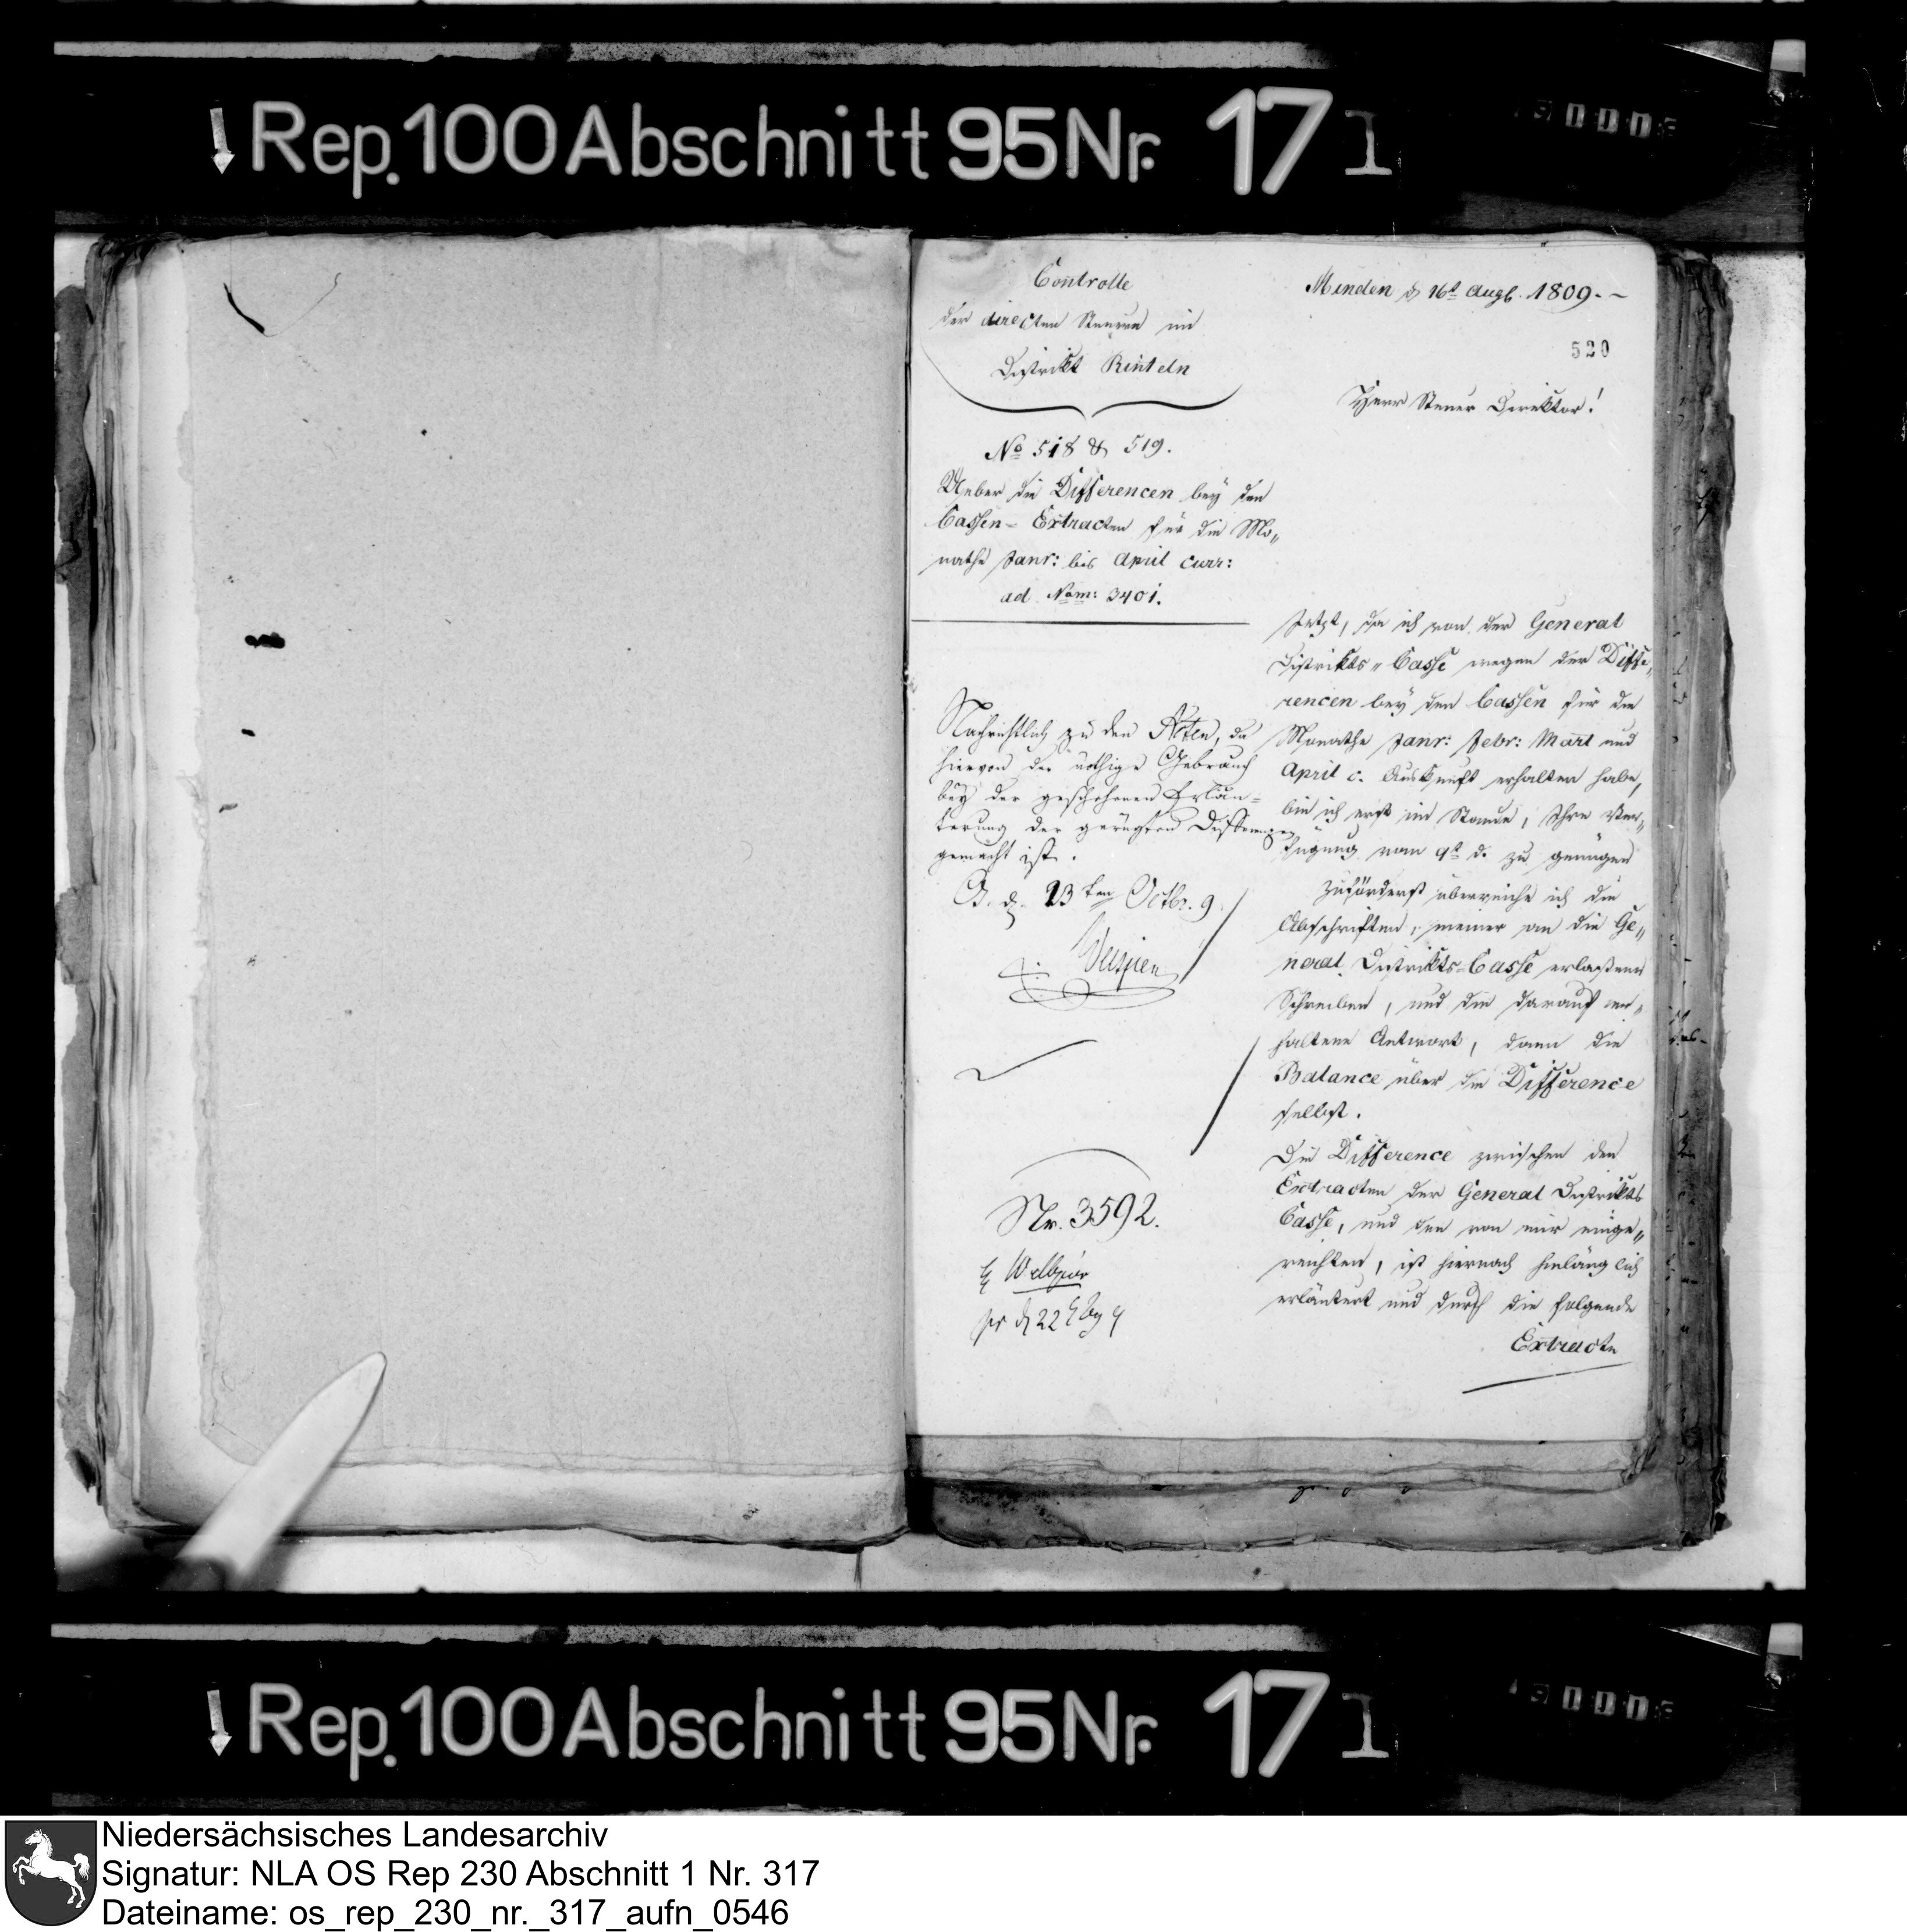 Rep. 100 Abschnitt 95 Nr. 17 1
Controlle
der directen Steuern im
Distrikt Rinteln
No 518 & 519.
Ueber die Differencen bey den
Cassen- Extracten für die Mo„
nathe Janr: bis April curr:
ad Num: 3401.
Nachrichtlich zu den Akten, da
hiervon der nöthige Gebrauch
bey der geschehenen Erläu=
terung der gerügten Differenzen
gemacht ist.
d. 23ten Octbr. 9
Nr. 3592.
Minden d 16t Augt. 1809.
520
Herr Steuer Direktor!
Jetzt, da ich von der General
Distrikts„Casse wegen der Diffe„
rencen bey den Cassen für die
Monathe Janr: Febr: Mart und
April c. Auskunft erhalten habe,
bin ich erst im Stande, Ihre Ver„
fügung vom 9t d. zu genügen
Zuförderst überreiche ich die
Abschriften, meiner an die Ge„
neral Distrikts=Casse erlaßenen
Schreiben, und die darauf er„
haltene Antwort, dann die
Balance über die Difference
selbst.
Die Difference zwischen den
Extracten der General Distrikts
Casse, und den von mir einge„
reichten, ist hiernach hinlänglich
erläutert und durch die folgende
Extracte
Rep. 100 Abschnitt 95 Nr. 17 1
Niedersächsisches Landesarchiv
Signatur: NLA OS Rep 230 Abschnitt 1 Nr. 317
Dateiname: os_rep_230_nr._317_aufn_0546